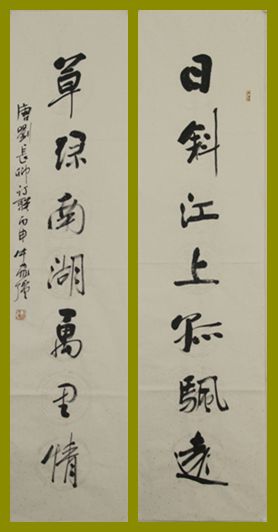 日斜江上孤颿遠
草绿南湖萬里情
唐劉長卿詩聯丙申牛